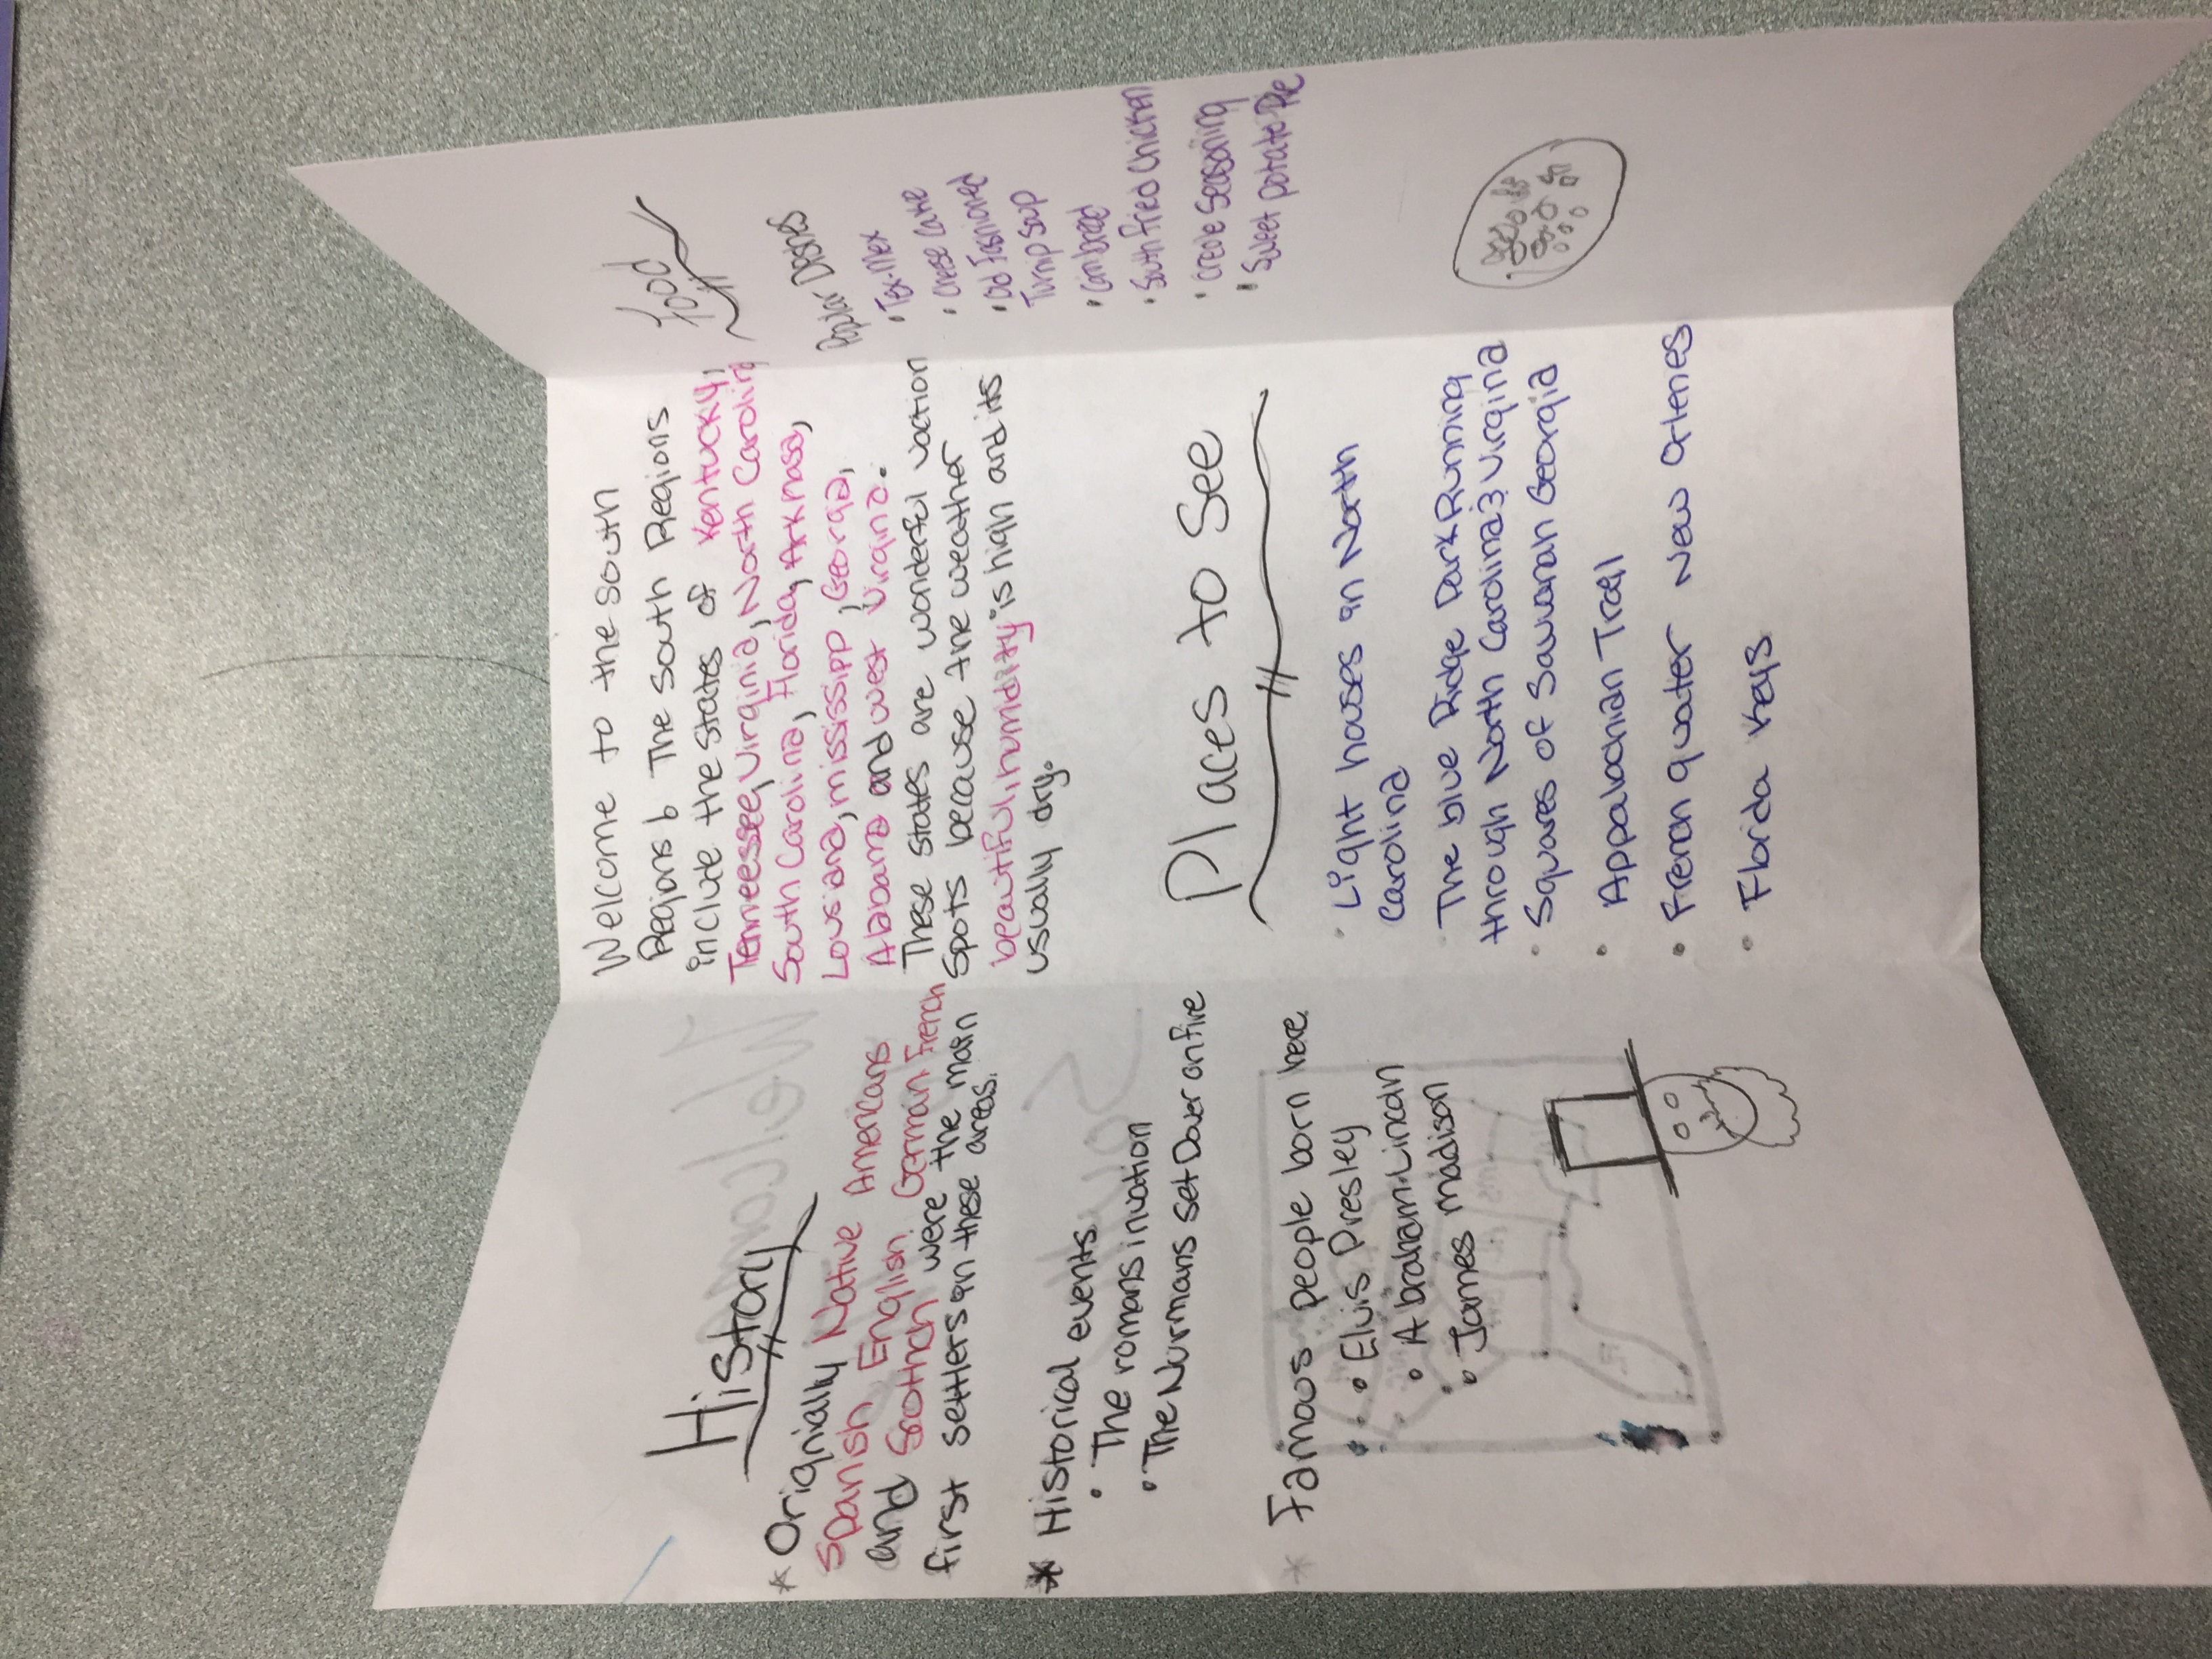 History
* Orignially Native Americans
Spanish English German French
and Scottach were the main
first settlers on these areas.
* Historical events
• The romans invation
• The Nurmans set Dover on fire
* Famous people born here
• Elvis Presley
• Abraham Lincoln
• James madison
Welcome to the south
Regions 6 The South Regions
include the States of Kentucky,
Tennessee, Virginia, North Carolina
South Carolina, Florida, Arknasa,
Lousiana, mississipp, Georga,
Alabama and west Virgina.
These states are wonderful vaction
Spots because the weather
beautiful, humidity is high and its
usually dry.
Places to See
• Light houses in North
Carolina
• The blue Ridge Park Running
through North Carolina & Virgina
• Squares of Savanah Georgia
• Appalachian Trail
• Fremon quater New Orlenes
• Florida Keys
Food
Poplar Dishes
• Tex-Mex
• Old Fashioned
Turnip Soup
• Cornbread
• South Fried Chicken
• Creole Seasoning
• Sweet Potato Pie